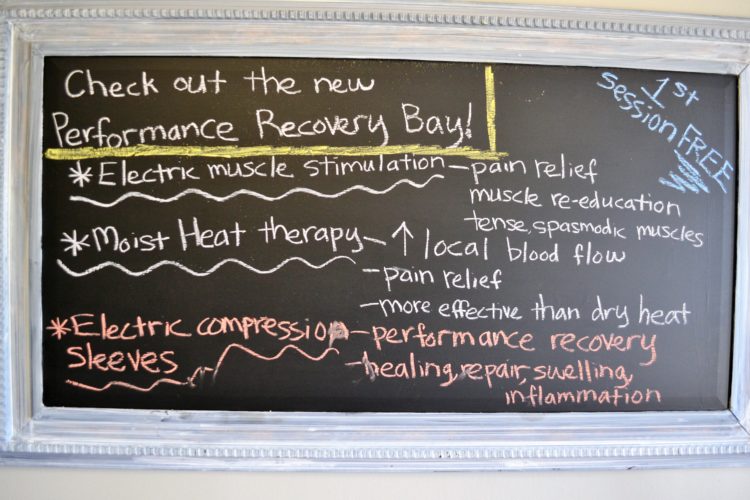 Check out the new
Performance Recovery Bay!
1st
session FREE
*Electric muscle stimulation – pain relief
muscle re-education
tense, spasmodic muscles
*Moist Heat therapy – ↑ local blood flow
– pain relief
– more effective than dry heat
*Electric compression – performance recovery
sleeves – healing, repair, swelling,
inflammation